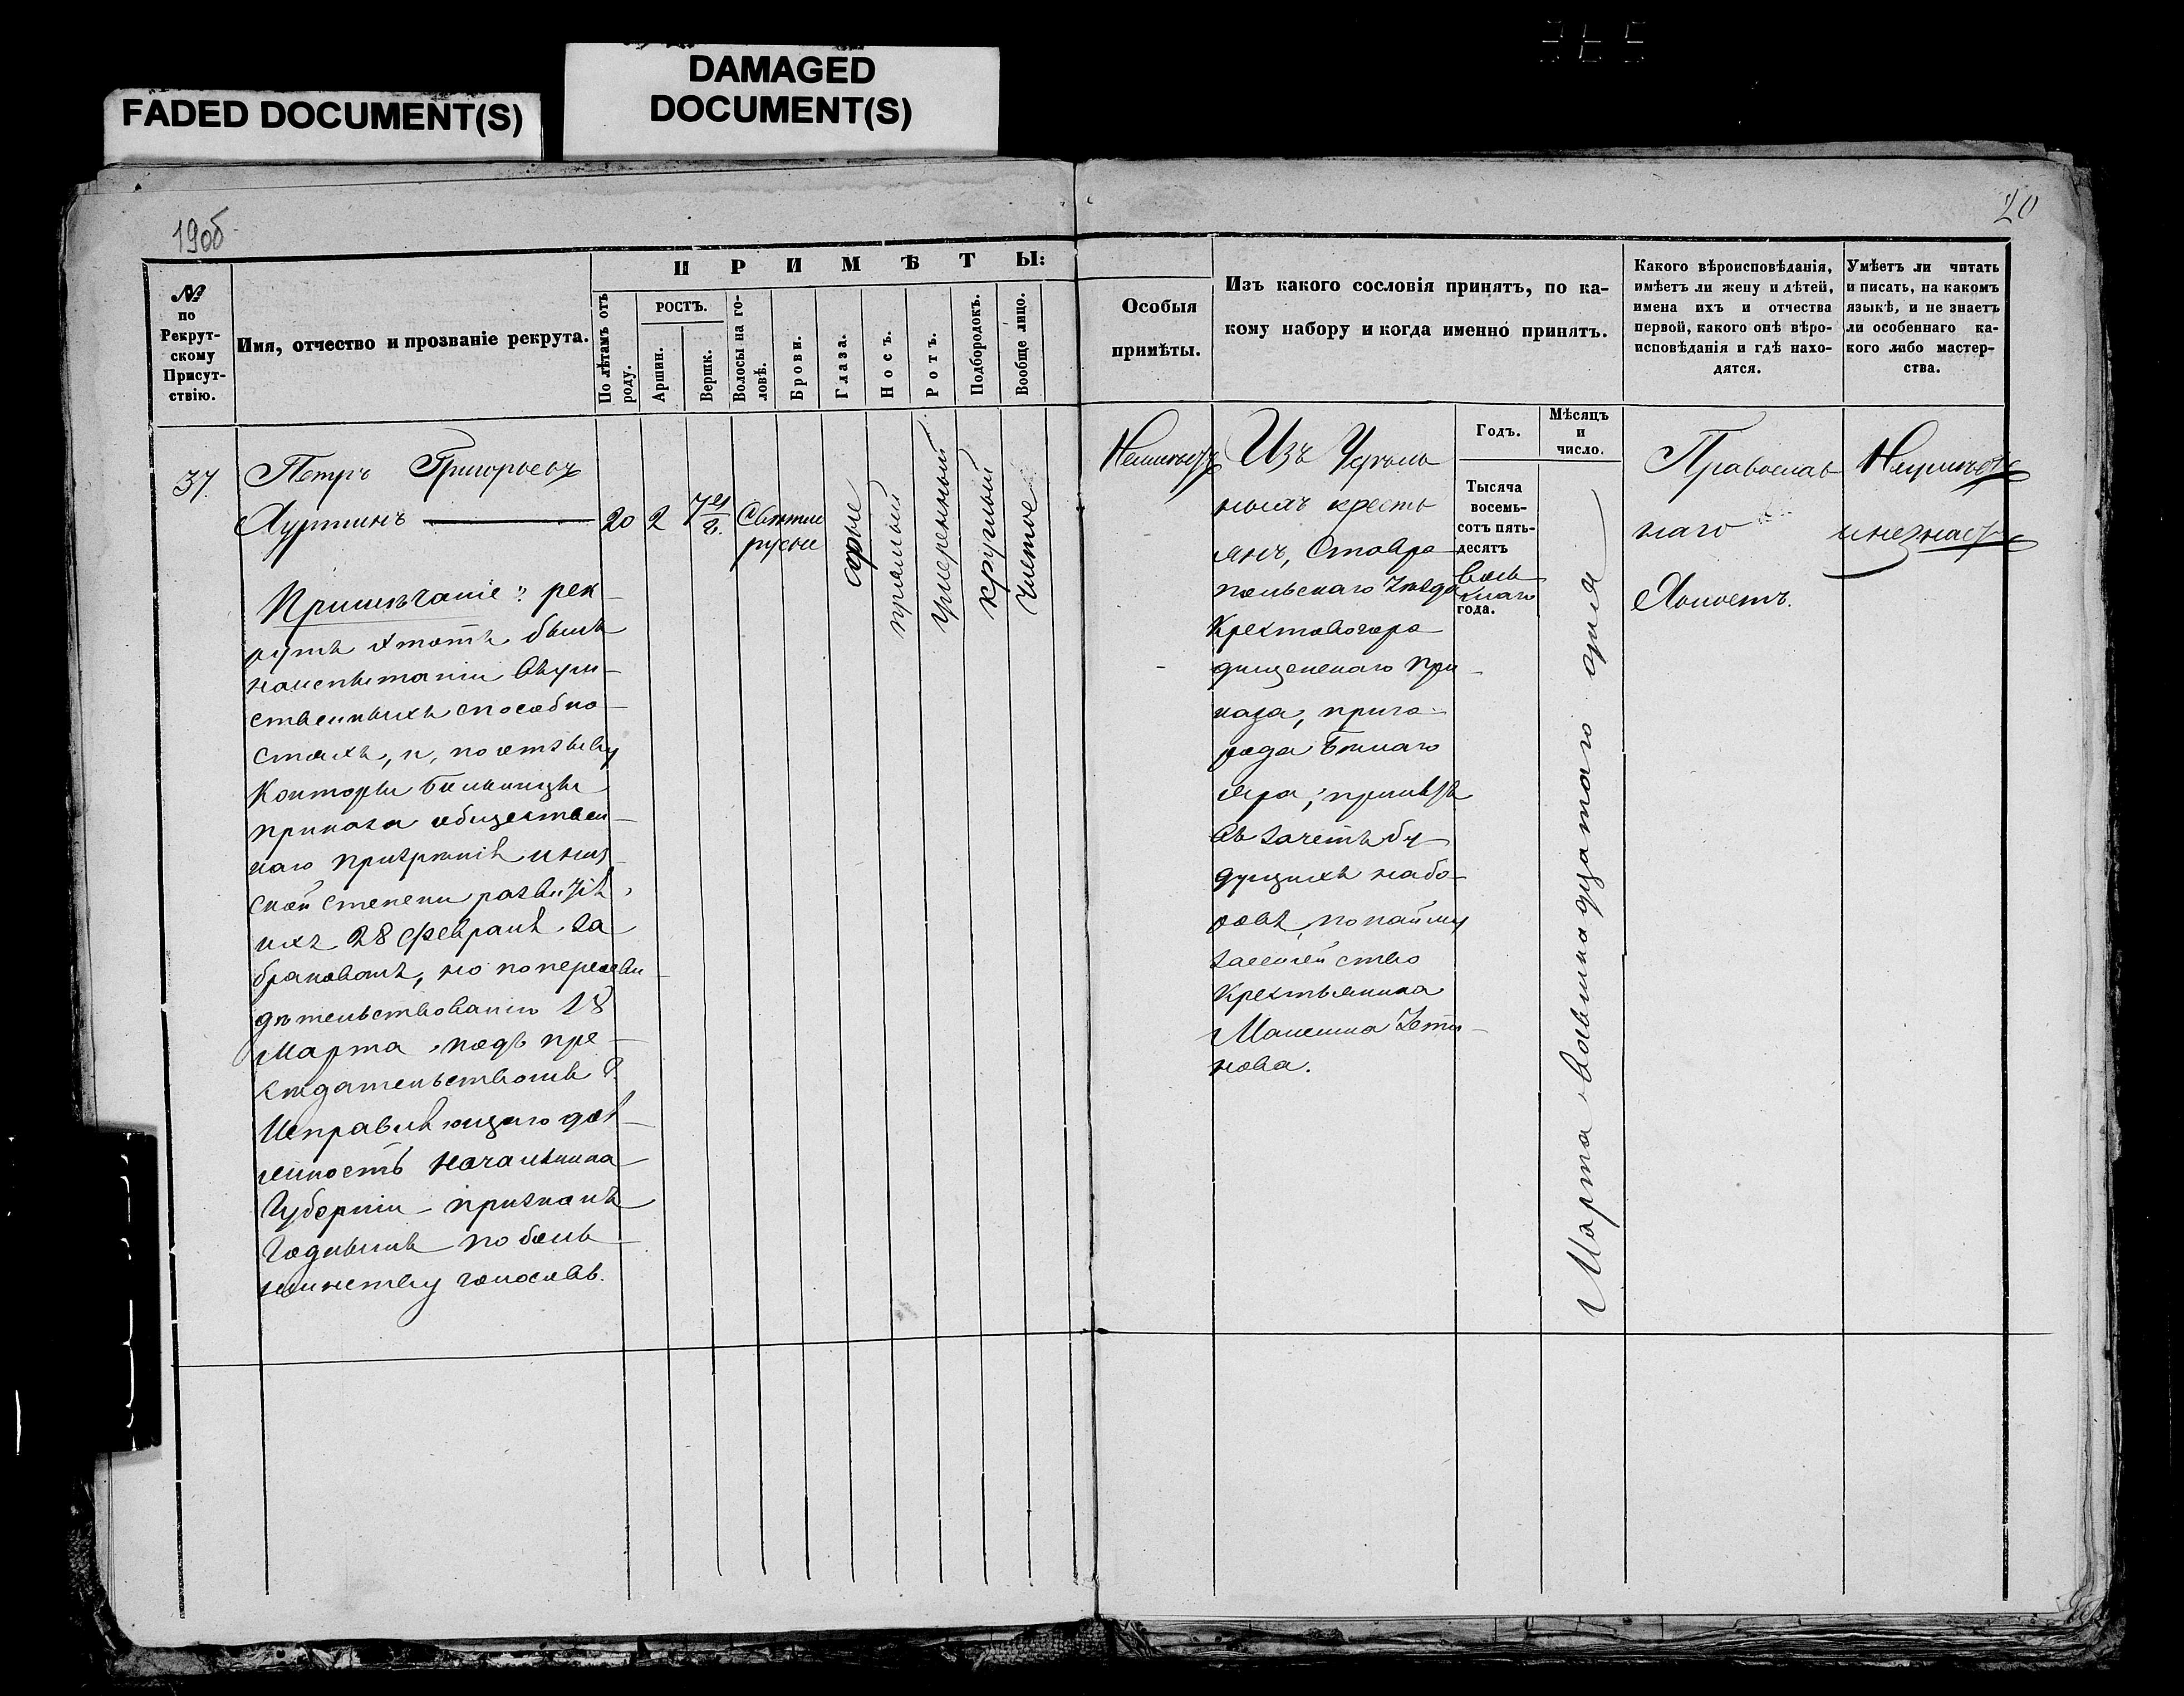 FADED DOCUMENT(S)
DAMAGED
DOCUMENT(S)
19об
20
№
по
Рекрут-
скому
Присут-
ствію.
Имя, отчество и прозваніе рекрута.
ПРИМѢТЫ:
По лѣтамъ отъ
роду.
РОСТЪ.
Аршин.
Вершк.
Волосы на го-
ловѣ.
Брови.
Глаза.
Носъ.
Ротъ.
Подбородокъ.
Вообще лицо.
Особыя
примѣты.
Изъ какого сословія принятъ, по ка-
кому набору и когда именно принятъ.
Какого вѣроисповѣданія,
имѣетъ ли жену и дѣтей,
имена ихъ и отчества
первой, какого онѣ вѣро-
исповѣданія и гдѣ нахо-
дятся.
Умѣетъ ли читать
и писать, на какомъ
языкѣ, и не знаетъ
ли особеннаго ка-
кого либо мастер-
ства.
Годъ.
Мѣсяцъ
и
число.
37.
Петръ Григорьевъ
20
2
Свѣтло
русые
сѣрые
прямый
умеренный
круглый
чистое
Примѣчаніе: рек-
рутъ этотъ былъ
наиспытаніи въум-
ственныхъ способно-
стяхъ, и, по отзыву
Конторы больницы
приказа обществен-
наго призрѣнія и низ-
скои степени развитія
ихъ 28 февраля за
бракованъ, но попереосви-
дѣтельствованію 18
Марта, подъ пре-
сѣдательствомъ Г.
Исправляющаго дол-
жность Начальника
Губерніи признанъ
Годнымъ по боль-
шинству голосовъ.
Изъ Удѣль
ныхъ кресть
янъ, Ставро-
польскаго Уѣзда
Крестовогоро-
дищенскаго при-
каза, приго-
рода Бѣлаго
Яра, принятъ
въ зачетъ бу-
дущихъ набо-
ровъ, понайму
засемейство
Крестьянина
Максима Усти-
нова.
Тысяча
восемь-
сотъ пять-
десятъ
вось
маго
года.
Марта восьмнадцатаго дня
Православ
наго
Холостъ.
Неумѣетъ
и незнаетъ